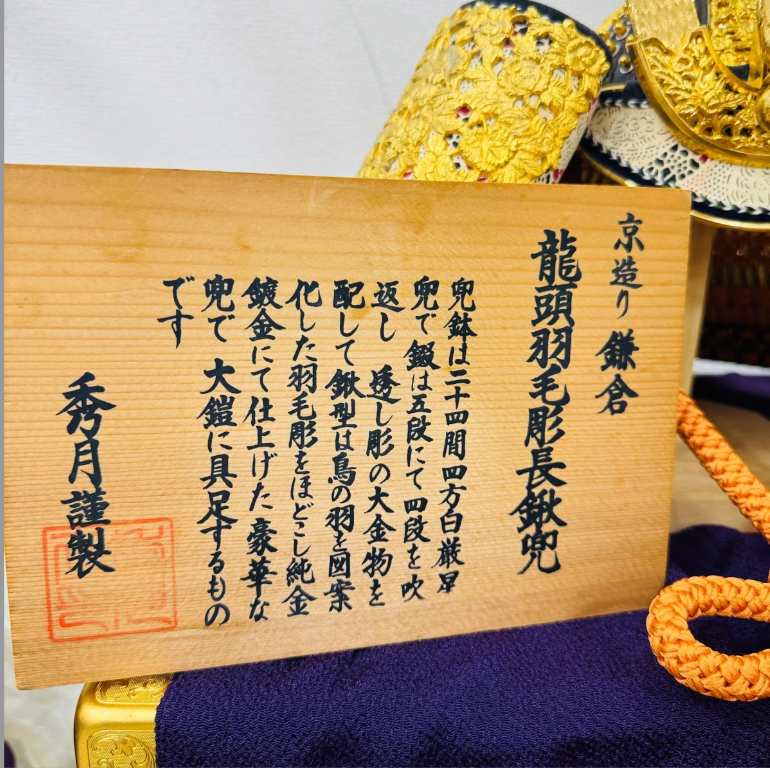 京造り 鎌倉
龍頭羽毛彫長鍬兜
兜鉢は二十四間四方白厳星
兜で 錣は五段にて四段を吹
返し 透し彫の大金物を
配して鍬型は鳥の羽を図案
化した羽毛彫をほどこし純金
鍍金にて仕上げた豪華な
兜で 大鎧に具足するもの
です
秀月謹製